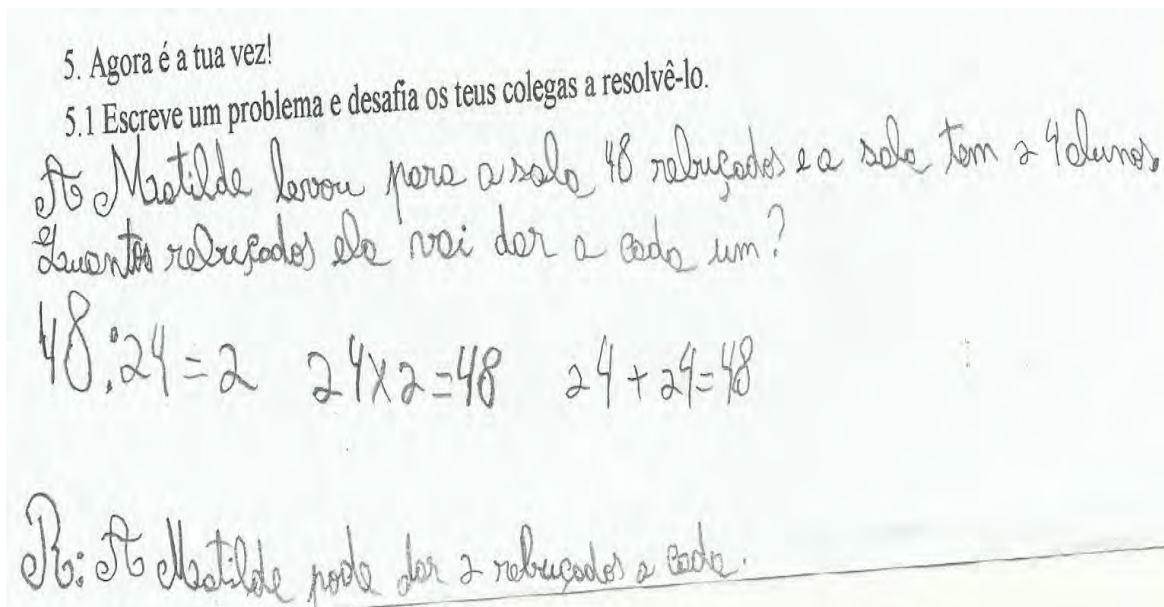 5. Agora é a tua vez!
5.1 Escreve um problema e desafia os teus colegas a resolvê-lo.
A Matilde levou para a sala 48 rebuçados e a sala tem 24 alunos.
Quantos rebuçados ela vai dar a cada um?
48:24=2 24x2=48 24+24=48
R: A Matilde pode dar 2 rebuçados a cada.